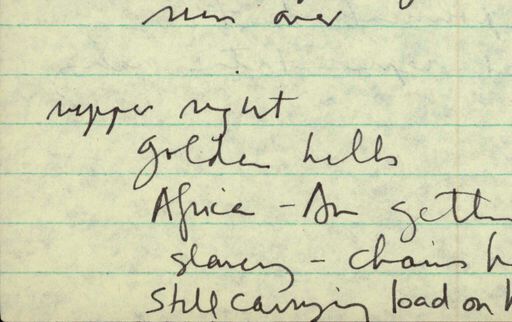 run over
upper right
golden hills
Africa - Am
slavery - chains
still carrying load on